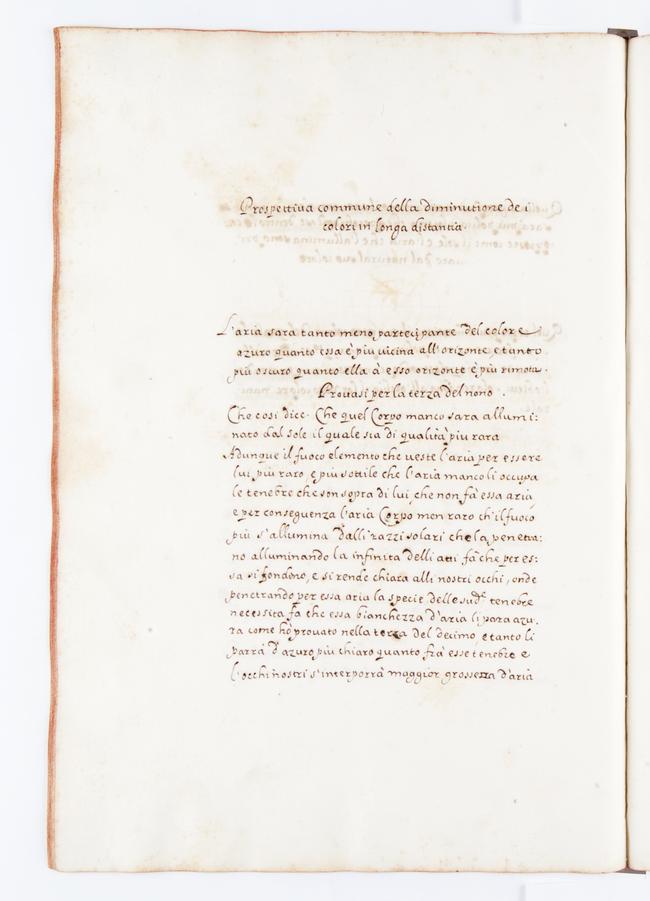 Prospettiva commune della diminutione de i
colori in longa distantia
L'aria sara tanto meno partecipante del colore
azuro quanto essa è piu vicina all'orizonte, e tanto
più oscuro quanto ella à esso orizonte è più rimota.
Provasi per la terza del nono.
Che cosi dice. Che quel Corpo manco sara allumi:
nato dal sole il quale sia di qualità più rara
Adunque il fuoco elemento che veste l'aria per essere
lui più raro, e più sottile che l'aria manco li occupa
le tenebre che son sopra di lui, che non fà essa aria,
e per conseguenza l'aria Corpo men raro ch'il fuoco
più s'allumina dalli razzi solari che la penetra:
no alluminando la infinità delli atti fà che per es:
sa si fondeno, e si rende chiara alli nostri occhi, onde
penetrando per essa aria la specie delle sud.e tenebre
necessita fà che essa bianchezza d'aria li para azu:
ra come hò provato nella terza del decimo, e tanto li
parrà d'azuro più chiaro quanto frà esse tenebre e
l'occhi nostri s'interporrà maggior grossezza d'aria